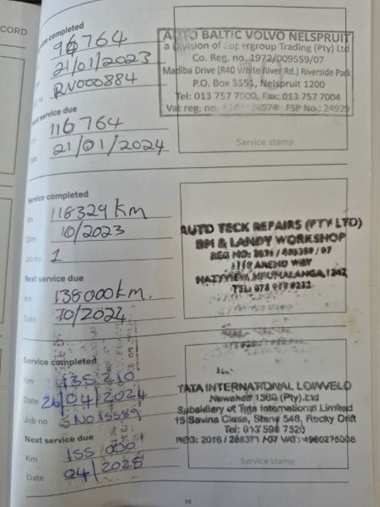 CORD
Service completed
96764
21/01/2023
RW000884
Next service due
116764
21/01/2024
AUTO BALTIC VOLVO NELSPRUIT
a Division of Supergroup Trading (Pty) Ltd
Co. Reg. no. 1972/009559/07
Madiba Drive (R40 White River Rd.) Riverside Park
P.O. Box 3551, Nelspruit 1200
Tel: 013 757 7000, Fax: 013 757 7004
Vat reg. no. FSP No.: 24929
Service stamp
Service completed
Km 118329 km
Date 10/2023
Job no 1
Next service due
Km 138000 km.
Date 10/2024
AUTO TECK REPAIRS (PTY LTD)
BM & LANDY WORKSHOP
REG NO:
MPUMALANGA, 1242
TEL: 078
Service stamp
Service completed
Km 135210
Date 26/04/2024
Job no SNO15589
Next service due
Km 155 000
Date 04/2025
TATA INTERNATIONAL LOWVELD
Newshelf 1369 (Pty) Ltd
Subsidiary of Tata International Limited
15 Savina Close, Stand 548, Rocky Drift
Tel: 013 598 7320
REG: 2016 / 288371 /07 VAT:
Service stamp